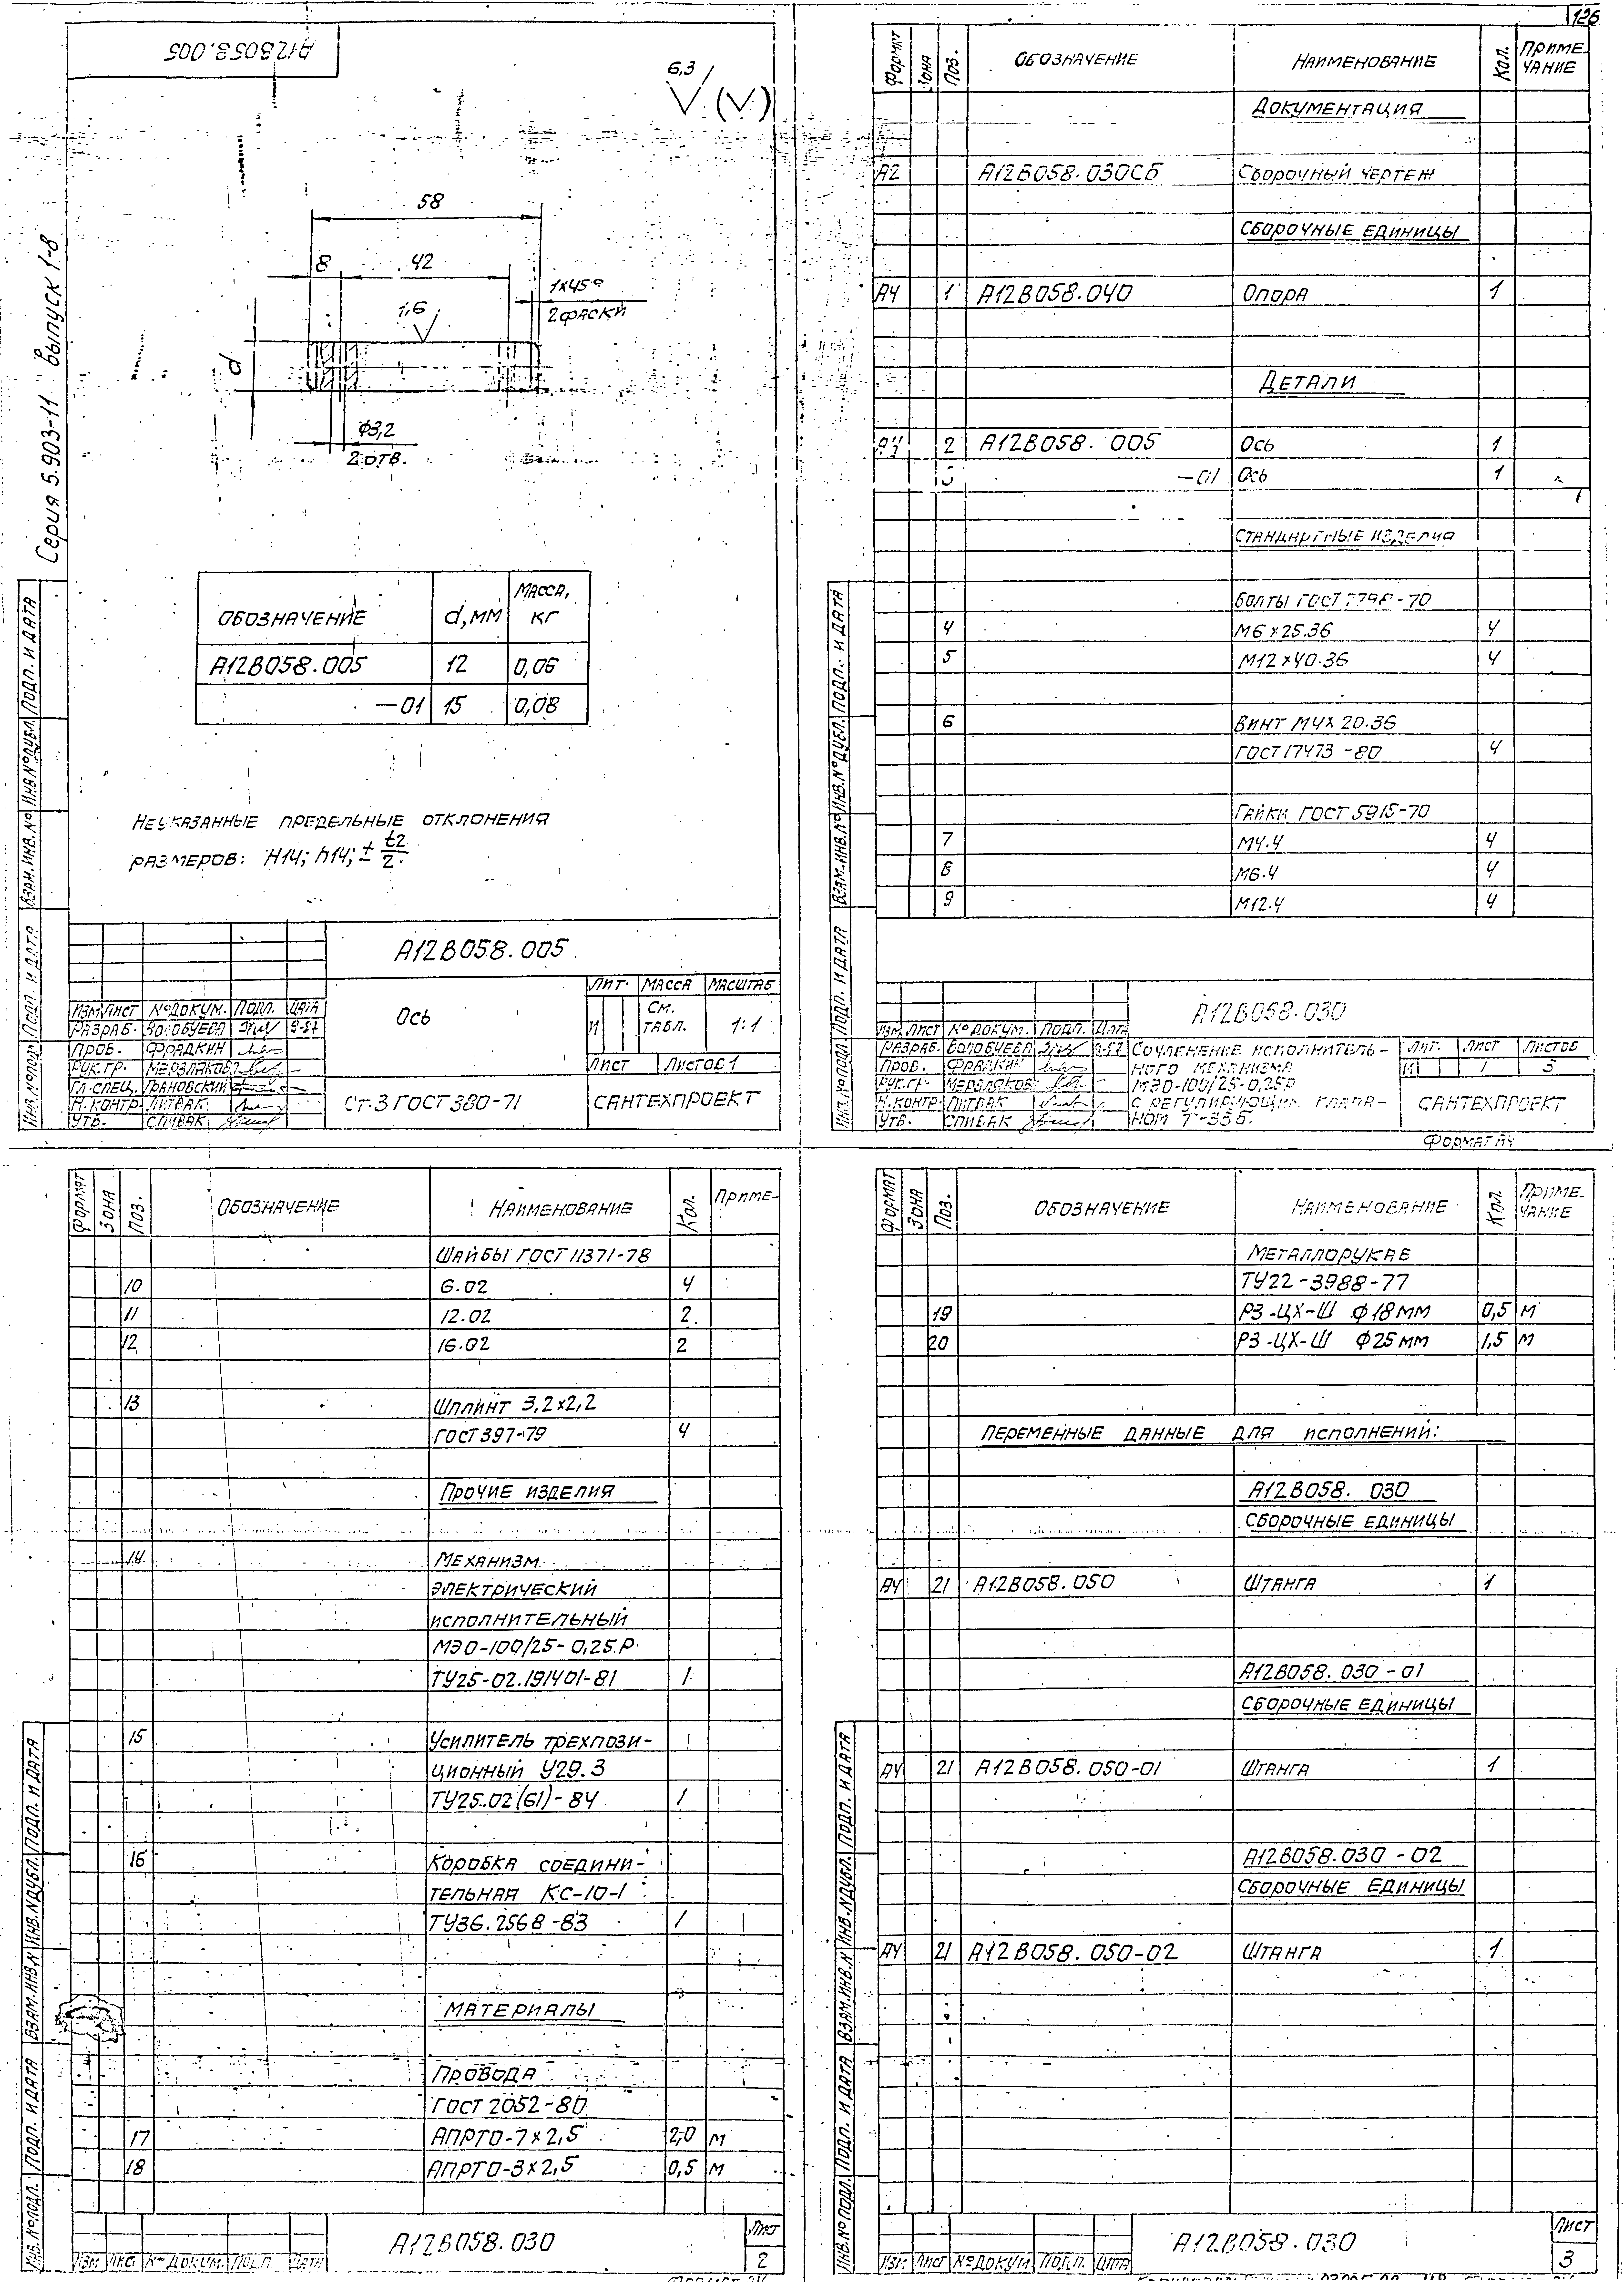 126
Серия 5.903-11 выпуск 1-8
А12В058.005
6,3
58
8 42
1×45°
2 фаски
1,6
d
Ф3,2
2 отв.
Обозначение d, мм Масса, кг
А12В058.005 12 0,06
—01 15 0,08
Неуказанные предельные отклонения
размеров: Н14; h14; ± t2/2.
А12В058.005
Ось
Лит. Масса Масштаб
И См. табл. 1:1
Лист Листов 1
Изм. Лист № докум. Подп. Дата
Разраб. 9-87
Пров. Фрадкин
Рук.гр.
Гл.спец. Грановский
Н.контр. Литвак
Утв. Спивак
Ст.3 ГОСТ 380-71
САНТЕХПРОЕКТ
Инв.№ подл. Подп. и дата Взам.инв.№ Инв.№ дубл. Подп. и дата
Формат Зона Поз. Обозначение Наименование Кол. Примечание
Документация
А2 А12В058.030СБ Сборочный чертеж
Сборочные единицы
А4 1 А12В058.040 Опора 1
Детали
А4 2 А12В058.005 Ось 1
3 —01 Ось 1
Стандартные изделия
Болты ГОСТ 7798-70
4 М6×25.36 4
5 М12×40.36 4
6 Винт М4×20.36
ГОСТ 17473-80 4
Гайки ГОСТ 5915-70
7 М4.4 4
8 М6.4 4
9 М12.4 4
А12В058.030
Изм. Лист № докум. Подп. Дата
Разраб. 9-87
Пров. Фрадкин
Рук.гр.
Н.контр. Литвак
Утв. Спивак
Сочленение исполнитель-
ного механизма
МЭО-100/25-0,25Р
с регулирующим клапа-
ном
Лит. Лист Листов
И 1 3
САНТЕХПРОЕКТ
Формат А4
Инв.№ подл. Подп. и дата Взам.инв.№ Инв.№ дубл. Подп. и дата
Формат Зона Поз. Обозначение Наименование Кол. Приме-
Шайбы ГОСТ 11371-78
10 6.02 4
11 12.02 2
12 16.02 2
13 Шплинт 3,2×2,2
ГОСТ 397-79 4
Прочие изделия
14 Механизм
электрический
исполнительный
МЭО-100/25-0,25Р
ТУ25-02.191401-81 1
15 Усилитель трехпози-
ционный У29.3
ТУ25.02(61)-84 1
16 Коробка соедини-
тельная КС-10-1
ТУ36.2568-83 1
Материалы
Провода
ГОСТ 2052-80
17 АПРТО-7×2,5 2,0 м
18 АПРТО-3×2,5 0,5 м
Изм. Лист № докум. Подп. Дата
А12В058.030
Лист
2
Инв.№ подл. Подп. и дата Взам.инв.№ Инв.№ дубл. Подп. и дата
Формат Зона Поз. Обозначение Наименование Кол. Приме-
чание
Металлорукав
ТУ22-3988-77
19 РЗ-ЦХ-Ш Ф18мм 0,5 м
20 РЗ-ЦХ-Ш Ф25мм 1,5 м
Переменные данные для исполнений:
А12В058.030
Сборочные единицы
А4 21 А12В058.050 Штанга 1
А12В058.030-01
Сборочные единицы
А4 21 А12В058.050-01 Штанга 1
А12В058.030-02
Сборочные единицы
А4 21 А12В058.050-02 Штанга 1
Изм Лист № докум. Подп. Дата
А12В058.030
Лист
3
Инв.№ подл. Подп. и дата Взам.инв.№ Инв.№ дубл. Подп. и дата